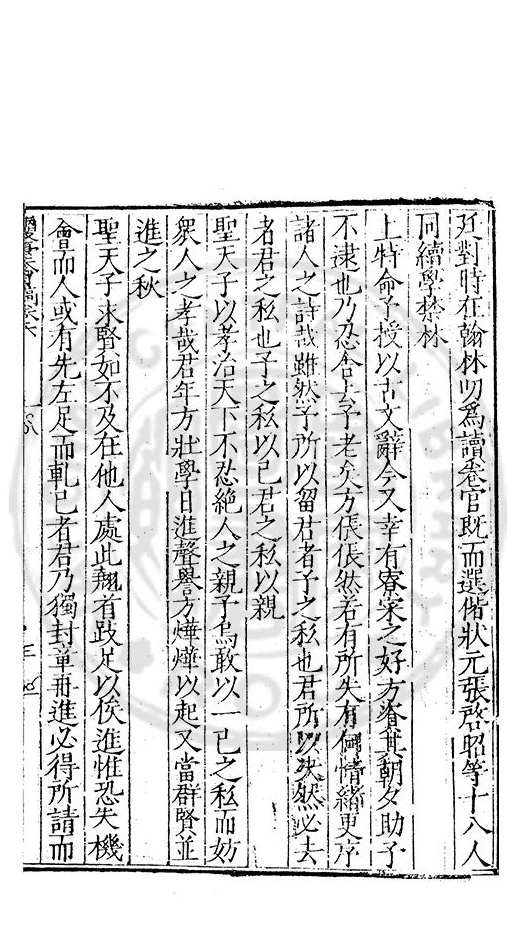 廷對時在翰林叨爲讀卷官既而選偕狀元張啓昭等十八人
同續學禁林
上特命予授以古文辭今又幸有寮寀之好方資其朝夕助予
不逮也乃忍舍去予老矣方倀倀然若有所失有何情緒更序
諸人之詩哉雖然予所以留君者予之私也君所以決然必去
者君之私也予之私以己君之私以親
聖天子以孝治天下不忍絶人之親予烏敢以一己之私而妨
衆人之孝哉君年方壯學日進聲譽方燁燁以起又當群賢並
進之秋
聖天子求賢如不及在他人處此翹首跂足以俟進惟恐失機
會而人或有先左足而軋己者君乃獨封章再進必得所請而